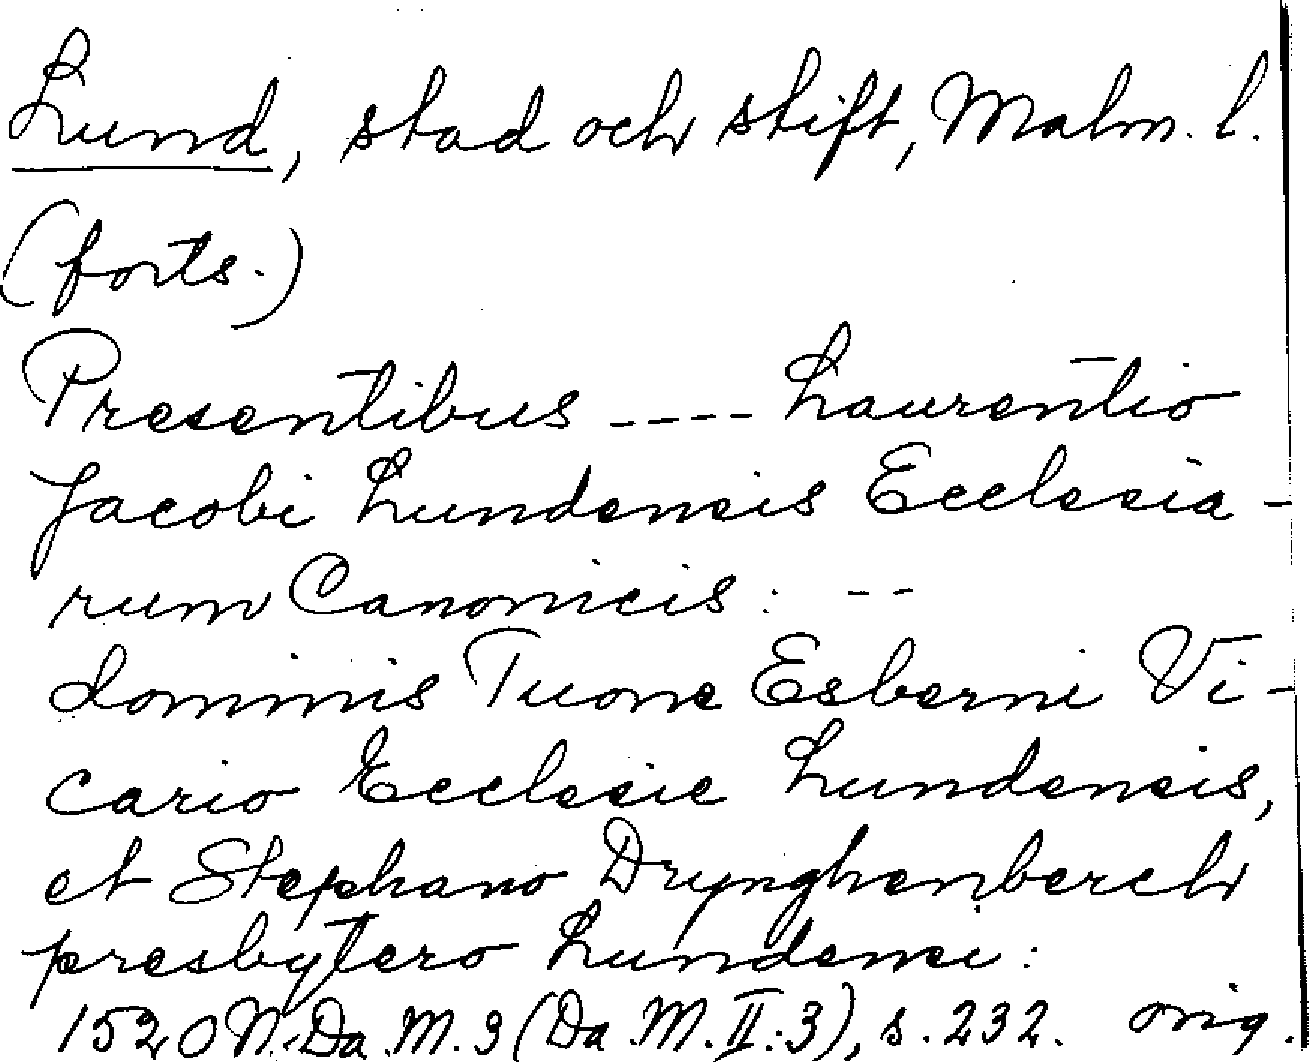 Lund, stad och stift, Malm. l.
(forts.)
Presentibus ---- Laurentio
Jacobi Lundensis Ecclesia-
rum Canonicis: --
dominis Tuone Esberni Vi-
cario Ecclesie Lundensis,
et Stephano Drynghenberch
presbytero Lundensi:
1520 N. Da. M. 3 (Da. M. II: 3), s. 232. orig.